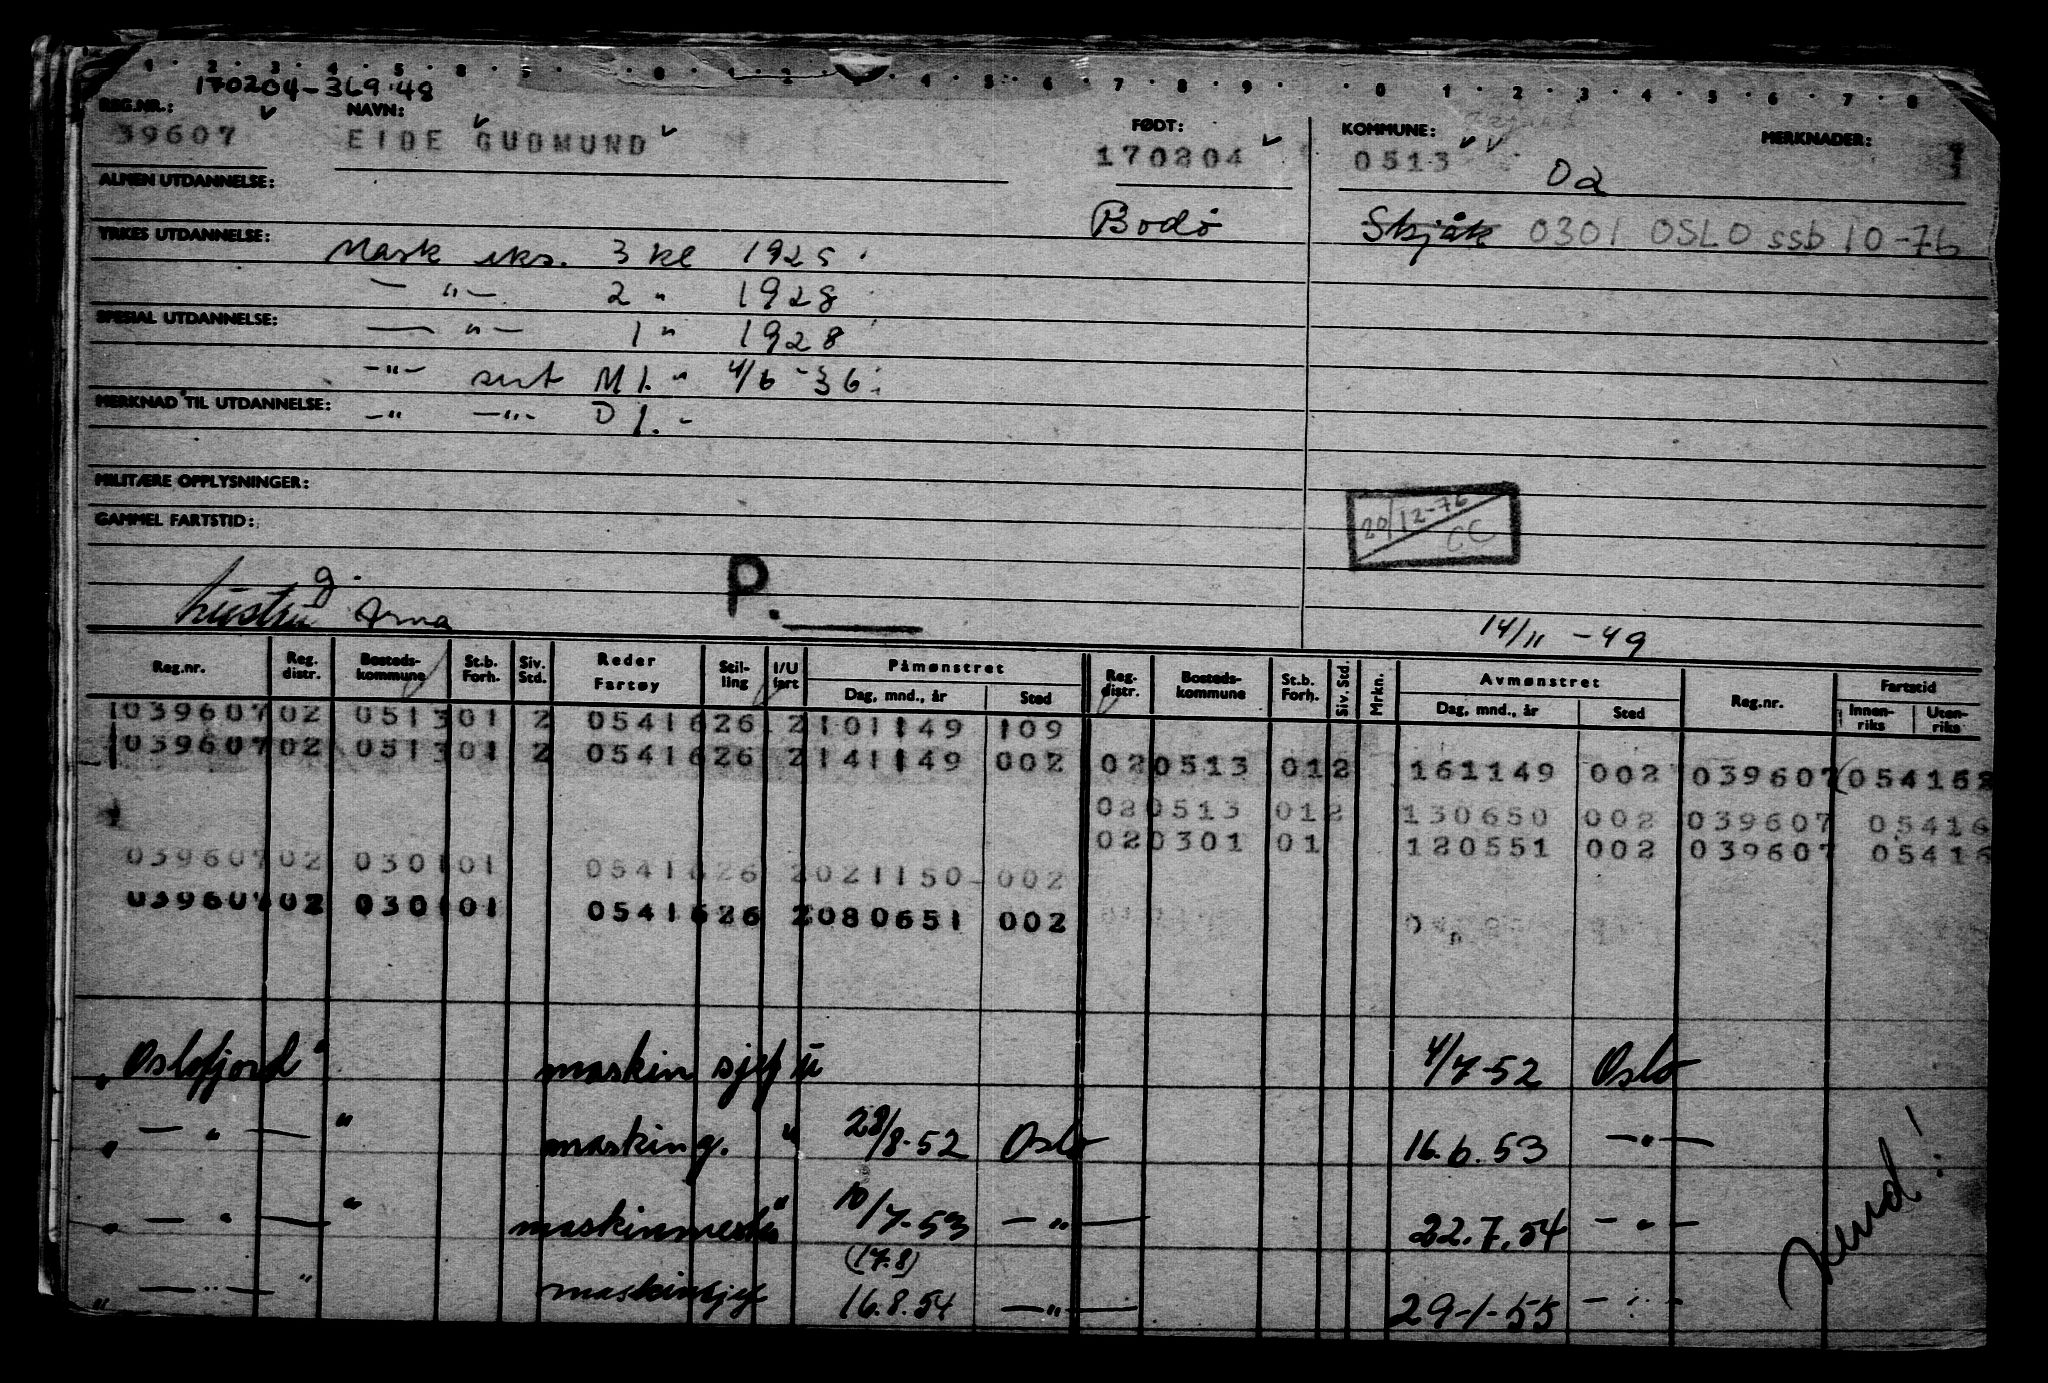 1 · 2 · 3 · 4 · 5 · 6 · 7 · 8 · 9 · 0 · 1 · 2 · 3 · 4 · 5 · 6 · 7 · 8
170204-369.48
REG.NR.: NAVN: FØDT: KOMMUNE: MERKNADER:
39607 EIDE GUDMUND 170204 0513 02
ALMEN UTDANNELSE:
Bodø Skjåk 0301 OSLO ssb 10-76
YRKES UTDANNELSE: Mask eks. 3 kl 1925
— " — 2 " 1928
SPESIAL UTDANNELSE: — " — 1 " 1928
— " — sert M 1. " 4/6 - 36
MERKNAD TIL UTDANNELSE: — " — " — D 1. -
MILITÆRE OPPLYSNINGER:
20/12-76 CC
GAMMEL FARTSTID:
P.
g. hustru Arna
14/11 - 49
Reg.nr. Reg. distr. Bosteds-kommune St.b. Forh. Siv. Std. Reder Fartøy Stil-ling I/U fart Påmønstret Dag, mnd., år Sted Reg. distr. Bosteds-kommune St.b. Forh. Siv. Std. Mrkn. Avmønstret Dag, mnd., år Sted Reg.nr. Fartstid Innen-riks Uten-riks
1039607 02 0513 01 2 0541626 2 101149 109
1039607 02 0513 01 2 0541626 2 141149 002 02 0513 01 2 161149 002 039607 (054162
02 0513 01 2 130650 002 039607 05416
02 0301 01 120551 002 039607 05416
039607 02 0301 01 0541626 2 021150 002
039607 02 0301 01 0541626 2 080651 002
" Oslofjord " maskinsjef u 4/7-52 Oslo
" — " — " masking. " 28/8-52 Oslo 16.6.53 — " —
" — " — " maskinmester " 10/7-53 — " — 22.7.54 — " —
(17.8)
" — " — " maskinsjef 16.8.54 — " — 29-1-55 — " —
Vend!